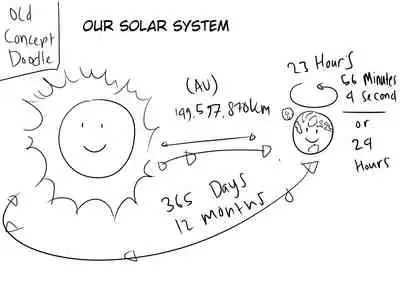 Old
Concept
Doodle
OUR SOLAR SYSTEM
(AU)
149.597.870km
23 Hours
56 Minutes
4 Second
or
24
Hours
365 Days
12 months